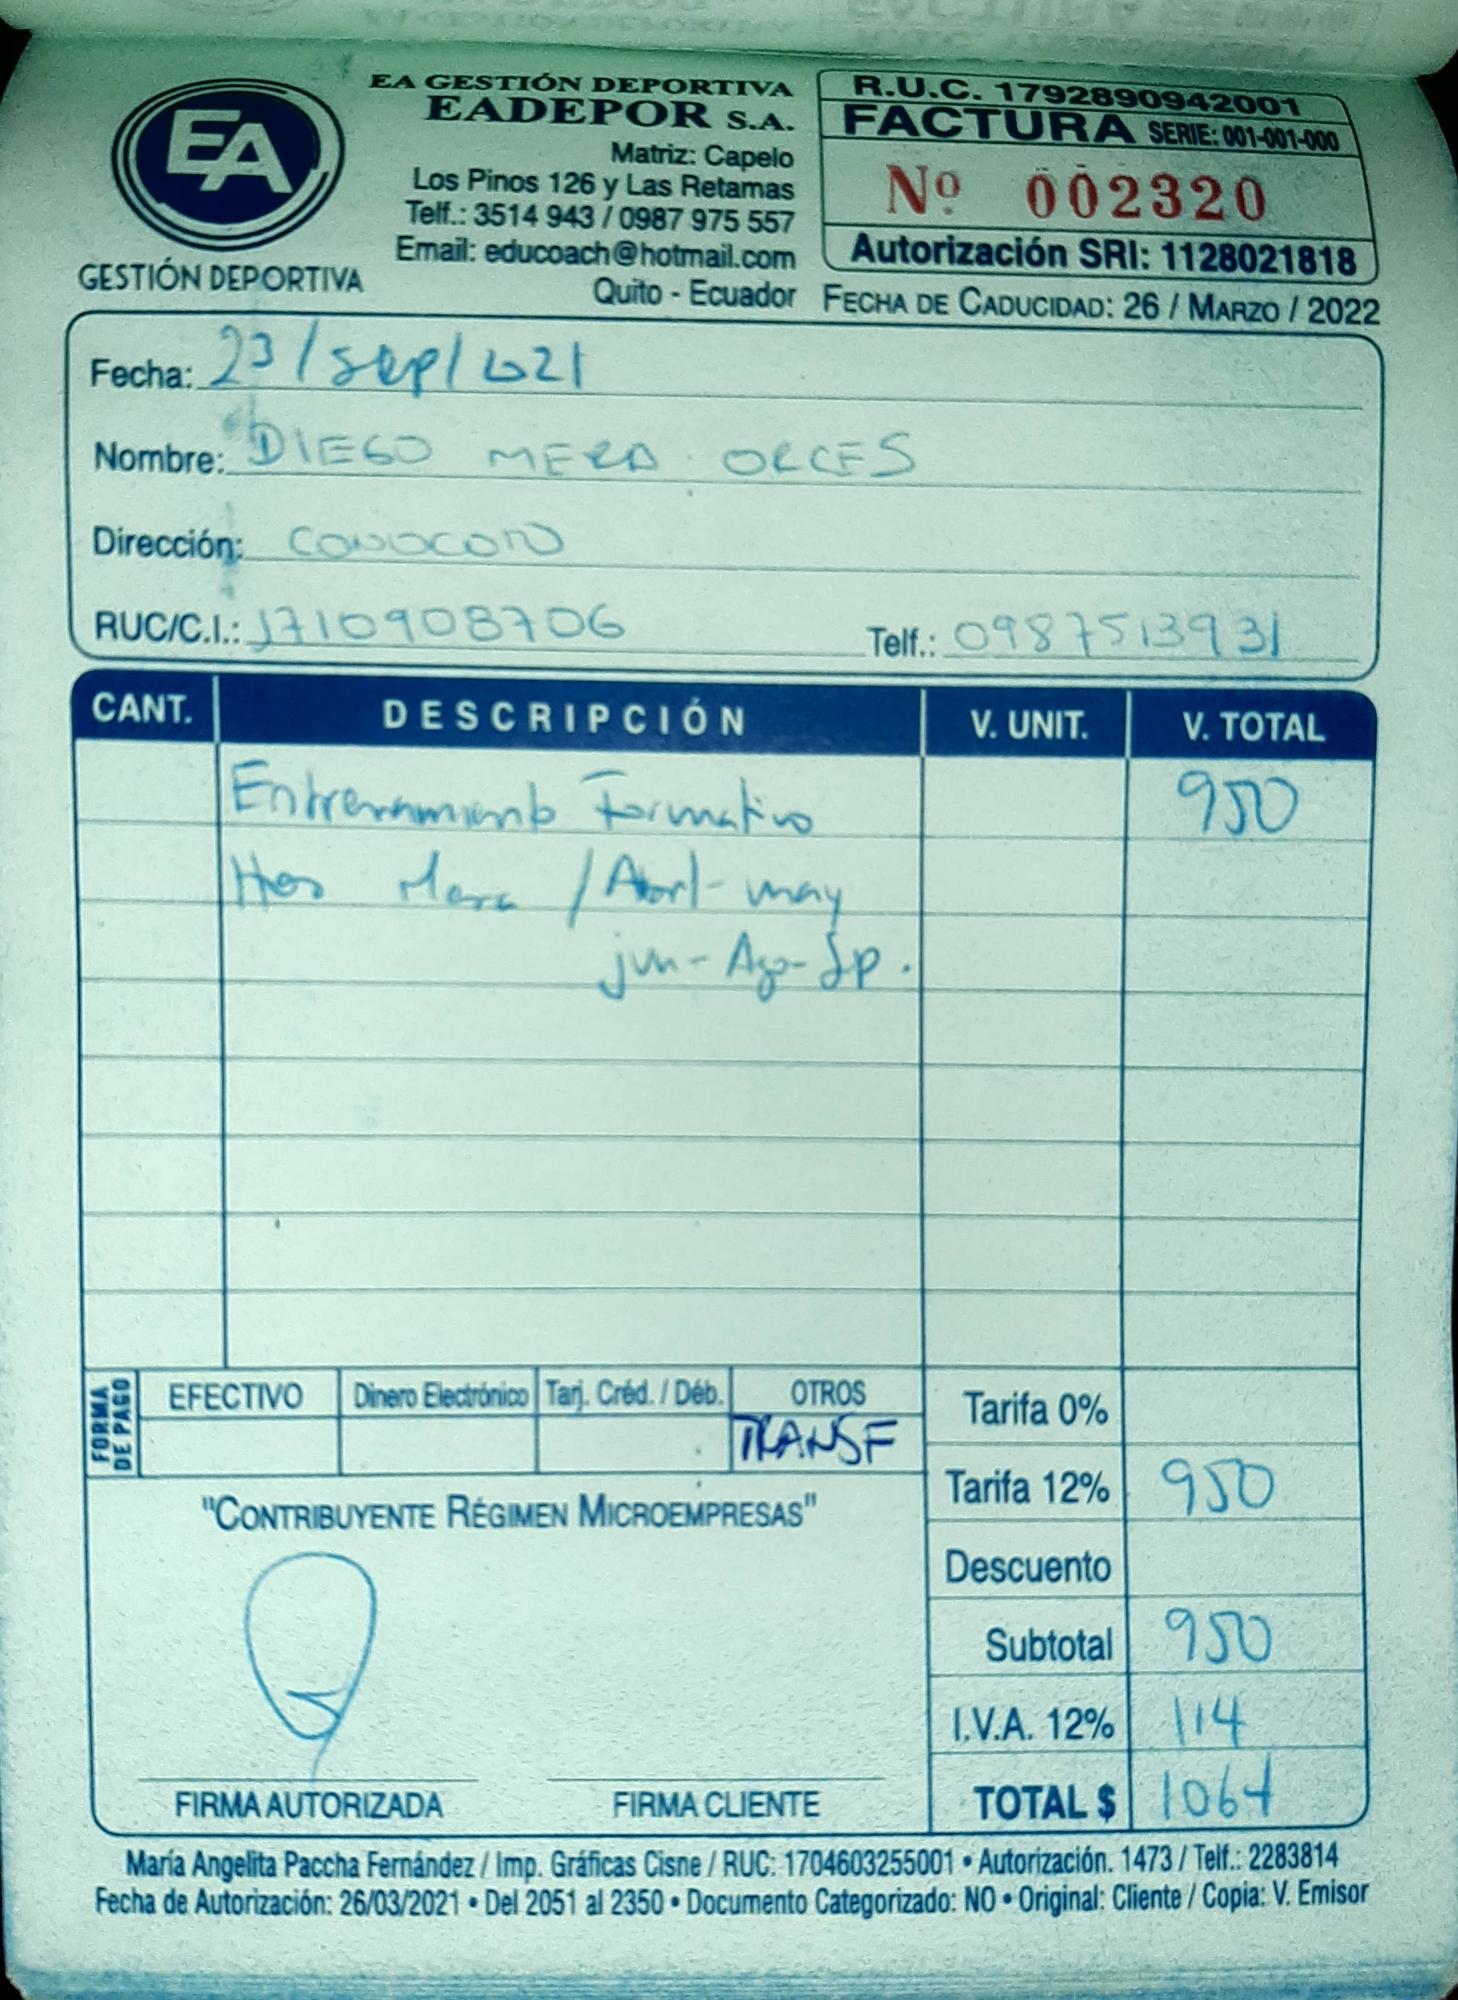 EA GESTIÓN DEPORTIVA
EADEPOR S.A.
Matriz: Capelo
Los Pinos 126 y Las Retamas
Telf.: 3514 943 / 0987 975 557
Email: educoach@hotmail.com
Quito - Ecuador
EA
GESTIÓN DEPORTIVA
R.U.C. 1792890942001
FACTURA SERIE: 001-001-000
Nº 002320
Autorización SRI: 1128021818
FECHA DE CADUCIDAD: 26 / MARZO / 2022
Fecha: 23/Sep/2021
Nombre: DIEGO MERA ORCES
Dirección: CONOCOTO
RUC/C.I.: 1710908706 Telf.: 0987513931
CANT. DESCRIPCIÓN V. UNIT. V. TOTAL
Entrenamiento Formativo 950
Hnos Mera / Abril- may
jun- Ago- Sep.
FORMA DE PAGO EFECTIVO Dinero Electrónico Tarj. Créd. / Déb. OTROS
TRANSF
Tarifa 0%
Tarifa 12% 950
Descuento
Subtotal 950
I.V.A. 12% 114
TOTAL $ 1064
"CONTRIBUYENTE RÉGIMEN MICROEMPRESAS"
FIRMA AUTORIZADA FIRMA CLIENTE
María Angelita Paccha Fernández / Imp. Gráficas Cisne / RUC: 1704603255001 • Autorización. 1473 / Telf.: 2283814
Fecha de Autorización: 26/03/2021 • Del 2051 al 2350 • Documento Categorizado: NO • Original: Cliente / Copia: V. Emisor